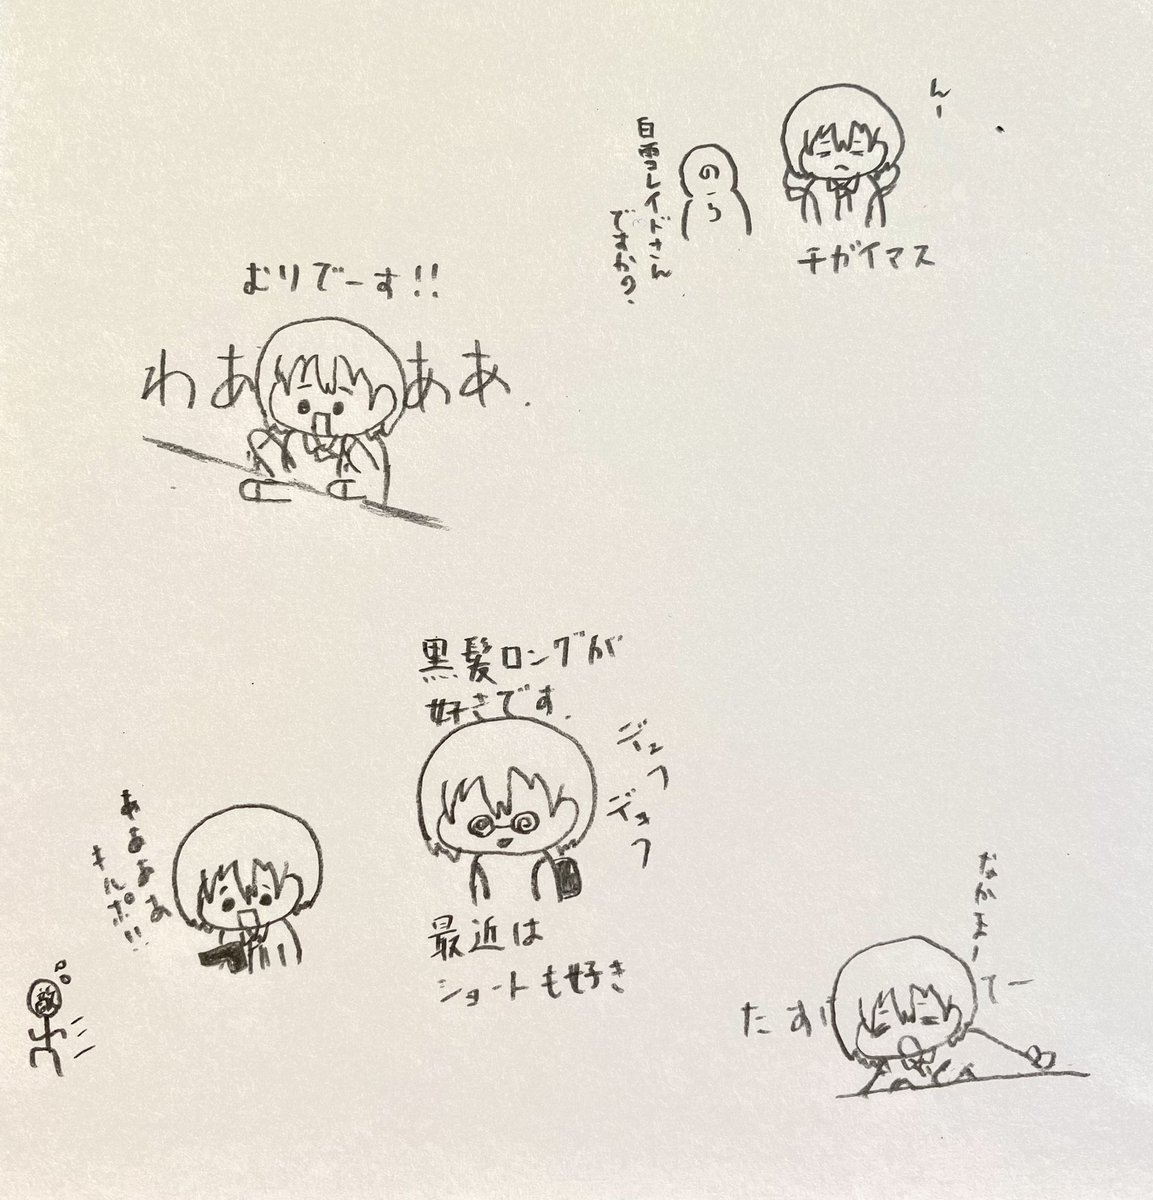 んー
白雪コレイドさん
ですか?
のら
チガイマス
むりでーす!!
わあああ.
黒髪ロングが
好きです.
デュフ
デュフ
最近は
ショートも好き
わあああぁ
キルポ!!
敵
なかまー
たすけてー